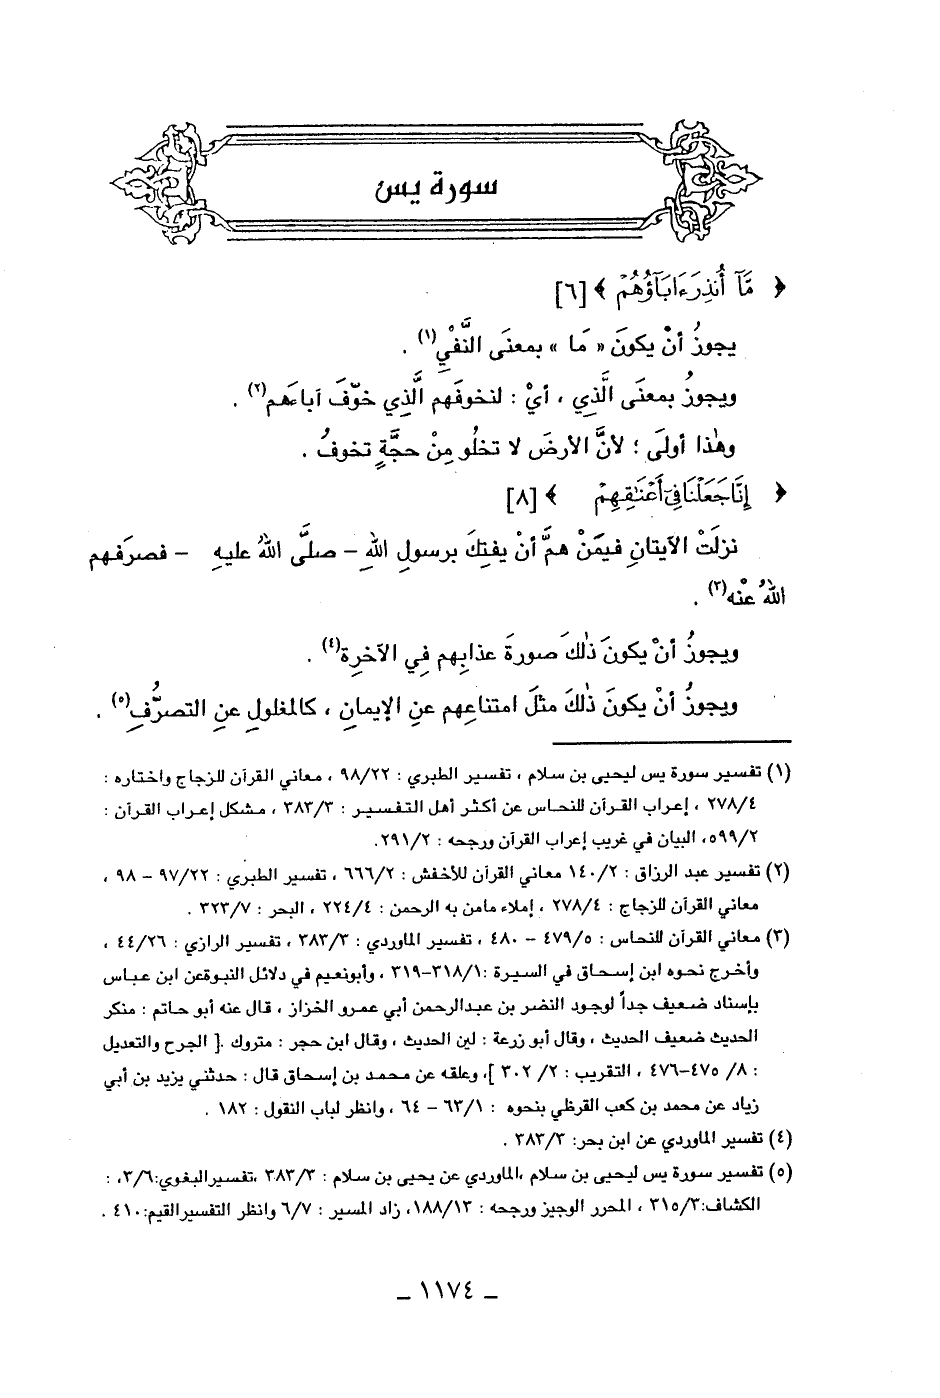 سورة يس
﴿ مَّآ أُنذِرَ ءَابَآؤُهُمْ ﴾ [٦]
يجوزُ أنْ يكونَ « مَا » بمعنَى النَّفْيِ(١) .
ويجوزُ بمعنَى الَّذِي ، أيْ : لنخوفَهم الَّذِي خوّفَ آباءَهم(٢) .
وهٰذا أولَى ؛ لأنَّ الأرضَ لا تخلُو مِنْ حجَّةٍ تخوفُ .
﴿ إِنَّا جَعَلْنَا فِيٓ أَعْنَٰقِهِمْ ﴾ [٨]
نزلَتْ الآيتانِ فيمَنْ همَّ أنْ يفتِكَ برسولِ اللهِ – صلَّى اللهُ عليهِ – فصرَفهم
اللهُ عنْه(٣) .
ويجوزُ أنْ يكونَ ذٰلكَ صورةَ عذابِهم فِي الآخرِة(٤) .
ويجوزُ أنْ يكونَ ذٰلكَ مثلَ امتناعِهم عنِ الإيمانِ ، كالمغلولِ عنِ التصرُّفِ(٥) .
(١) تفسير سورة يس ليحيى بن سلام ، تفسير الطبري : ٩٨/٢٢ ، معاني القرآن للزجاج واختاره :
٢٧٨/٤ ، إعراب القرآن للنحاس عن أكثر أهل التفسير : ٣٨٣/٣ ، مشكل إعراب القرآن :
٥٩٩/٢، البيان في غريب إعراب القرآن ورجحه : ٢٩١/٢.
(٢) تفسير عبد الرزاق : ١٤٠/٢ معاني القرآن للأخفش : ٦٦٦/٢ ، تفسير الطبري : ٩٧/٢٢ – ٩٨ ،
معاني القرآن للزجاج : ٢٧٨/٤ ، إملاء مامن به الرحمن : ٢٢٤/٤ ، البحر : ٣٢٣/٧ .
(٣) معاني القرآن للنحاس : ٤٧٩/٥ – ٤٨٠ ، تفسير الماوردي : ٣٨٣/٣ ، تفسير الرازي : ٤٤/٢٦ ،
وأخرج نحوه ابن إسحاق في السيرة :٣١٨/١–٣١٩ ، وأبونعيم في دلائل النبوةعن ابن عباس
بإسناد ضعيف جداً لوجود النضر بن عبدالرحمن أبي عمرو الخزاز ، قال عنه أبو حاتم : منكر
الحديث ضعيف الحديث ، وقال أبو زرعة : لين الحديث ، وقال ابن حجر : متروك .[ الجرح والتعديل
: ٨/ ٤٧٥–٤٧٦ ، التقريب : ٢/ ٣٠٢ ]، وعلقه عن محمد بن إسحاق قال : حدثني يزيد بن أبي
زياد عن محمد بن كعب القرظي بنحوه : ٦٣/١ – ٦٤ ، وانظر لباب النقول : ١٨٢ .
(٤) تفسير الماوردي عن ابن بحر: ٣٨٣/٣ .
(٥) تفسير سورة يس ليحيى بن سلام ،الماوردي عن يحيى بن سلام : ٣٨٣/٣ ،تفسيرالبغوي:٣/٦، :
الكشاف:٣١٥/٣ ، المحرر الوجيز ورجحه : ١٨٨/١٣، زاد المسير : ٦/٧ وانظر التفسيرالقيم:٤١٠ .
– ١١٧٤ –